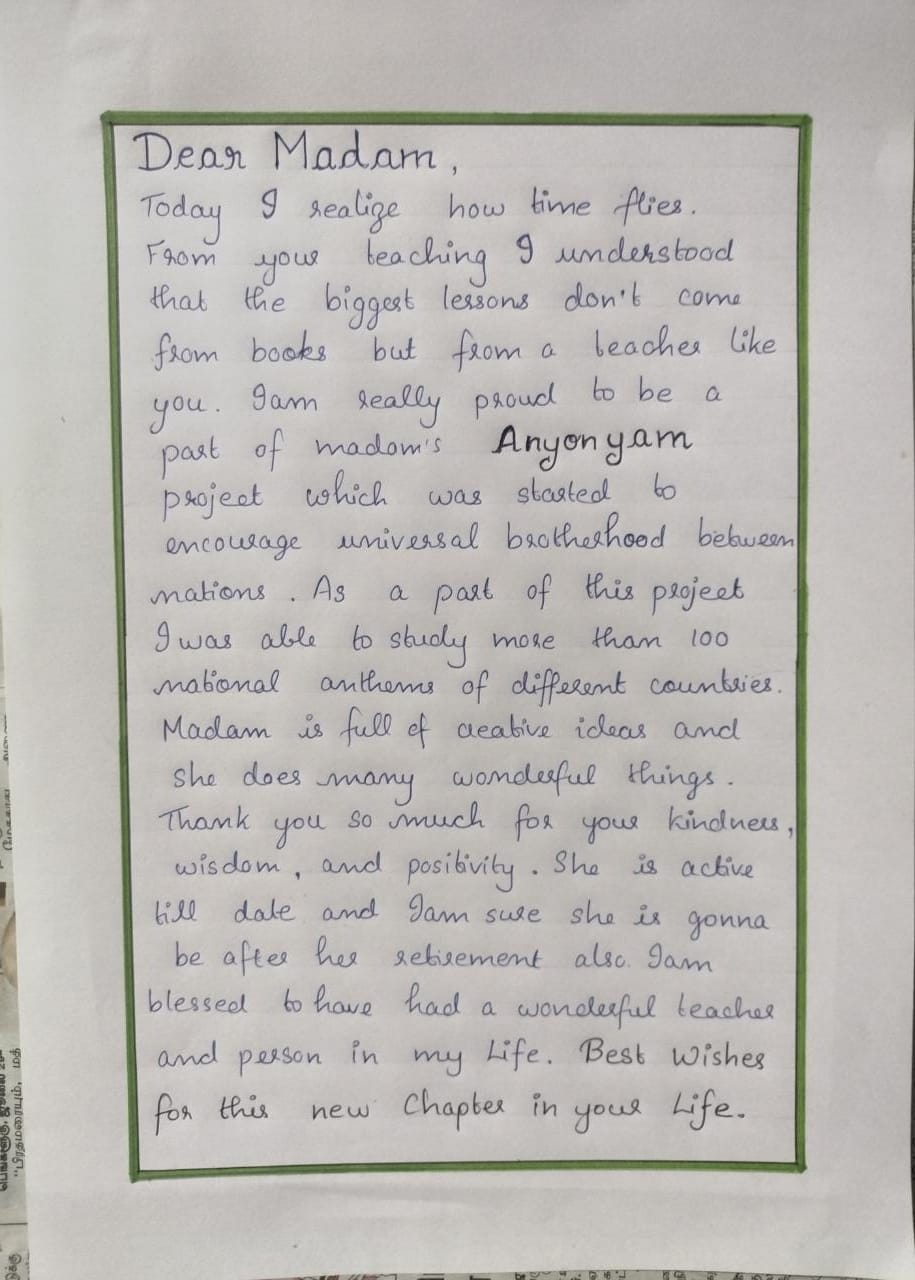 Dear Madam,
Today I realize how time flies.
From your teaching I understood
that the biggest lessons don't come
from books but from a teacher like
you. Iam really proud to be a
part of madam's Anyonyam
project which was started to
encourage universal brotherhood between
nations. As a part of this project
I was able to study more than 100
national anthems of different countries.
Madam is full of creative ideas and
she does many wonderful things.
Thank you so much for your kindness,
wisdom, and positivity. She is active
till date and Iam sure she is gonna
be after her retirement also. Iam
blessed to have had a wonderful teacher
and person in my Life. Best Wishes
for this new Chapter in your Life.